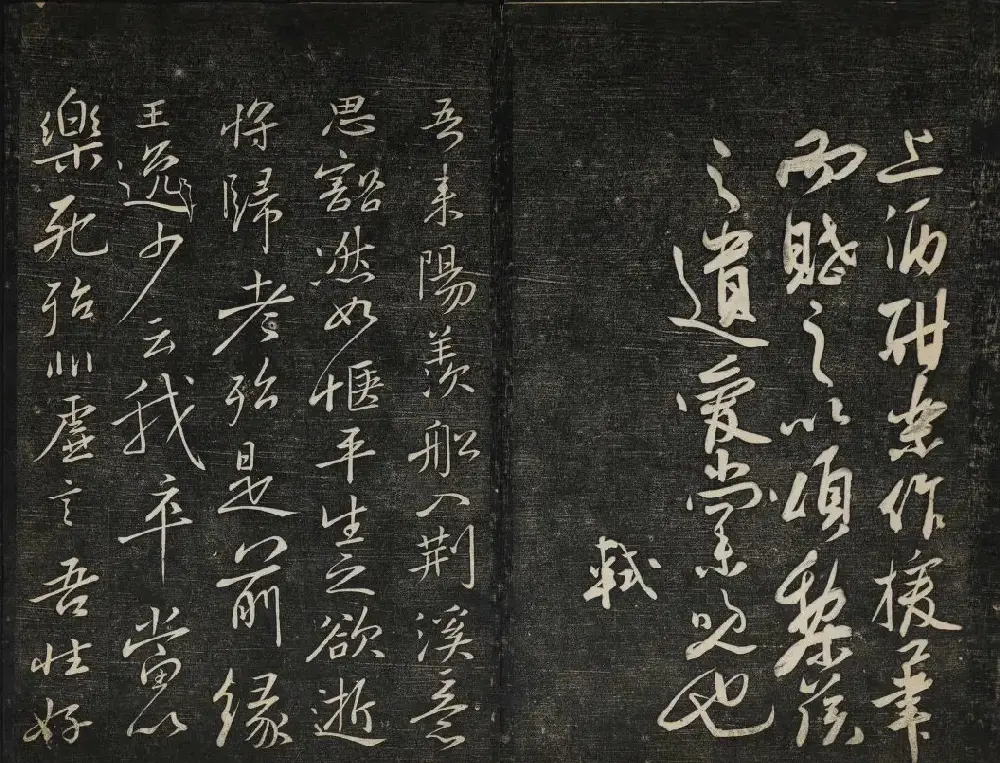 上酒酣樂作援筆
而賦之以頌黎侯
之遺愛尚未晚也
軾
吾來陽羨船入荊溪意
思豁然如愜平生之欲逝
將歸老殆是前緣
王逸少云我卒當以
樂死殆非虛言吾性好